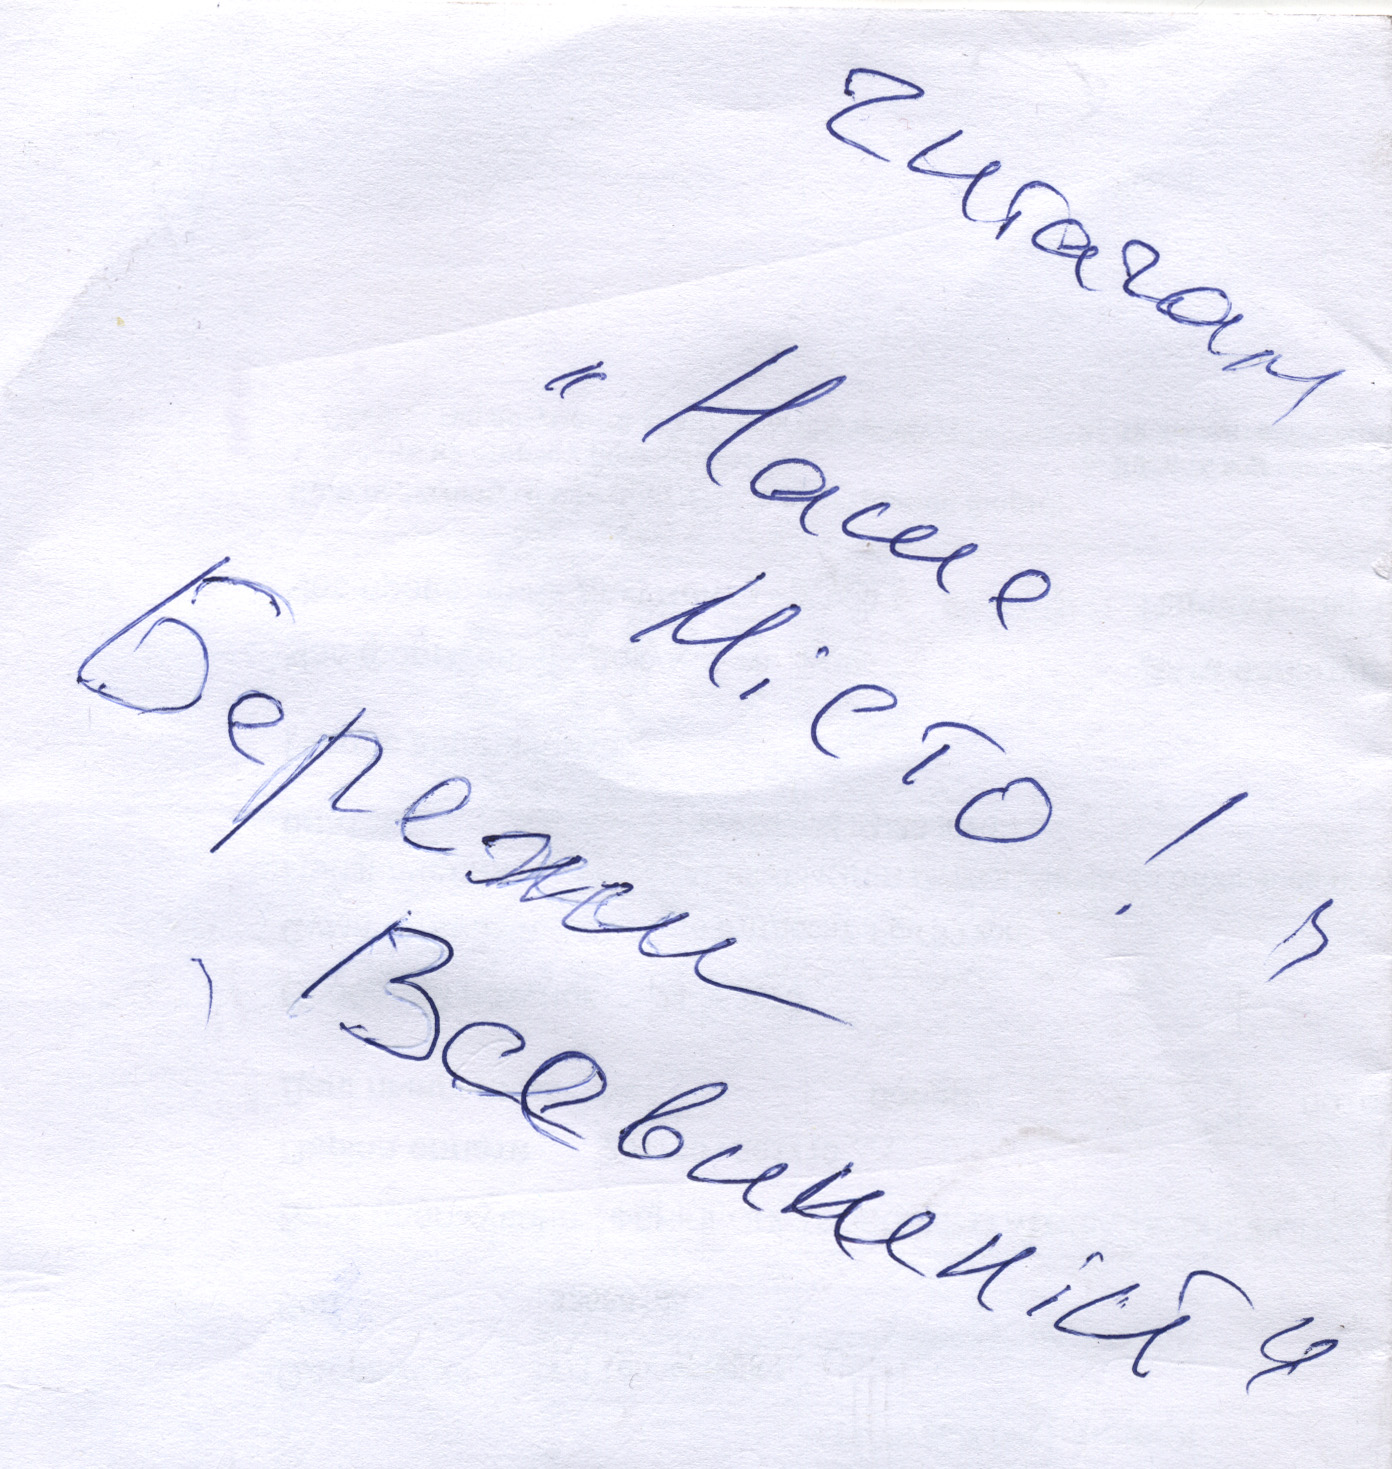 Читачам
"Наше
Місто!"
Бережи
Всевишній